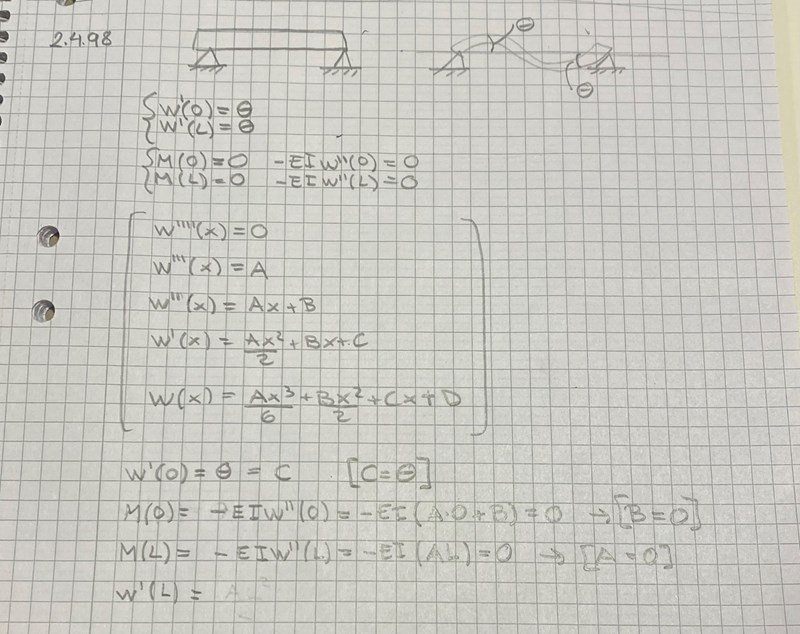 2.4.98
Θ
Θ
{ W'(0) = Θ
{ W'(L) = Θ
{ M(0) = 0   -EIW''(0) = 0
{ M(L) = 0   -EIW''(L) = 0
W''''(x) = 0
W'''(x) = A
W''(x) = Ax + B
W'(x) = Ax²/2 + Bx + C
W(x) = Ax³/6 + Bx²/2 + Cx + D
W'(0) = Θ = C   [C = Θ]
M(0) = -EIW''(0) = -EI(A·0+B) = 0 → [B=0]
M(L) = -EIW''(L) = -EI(A·L) = 0 → [A=0]
W'(L) =